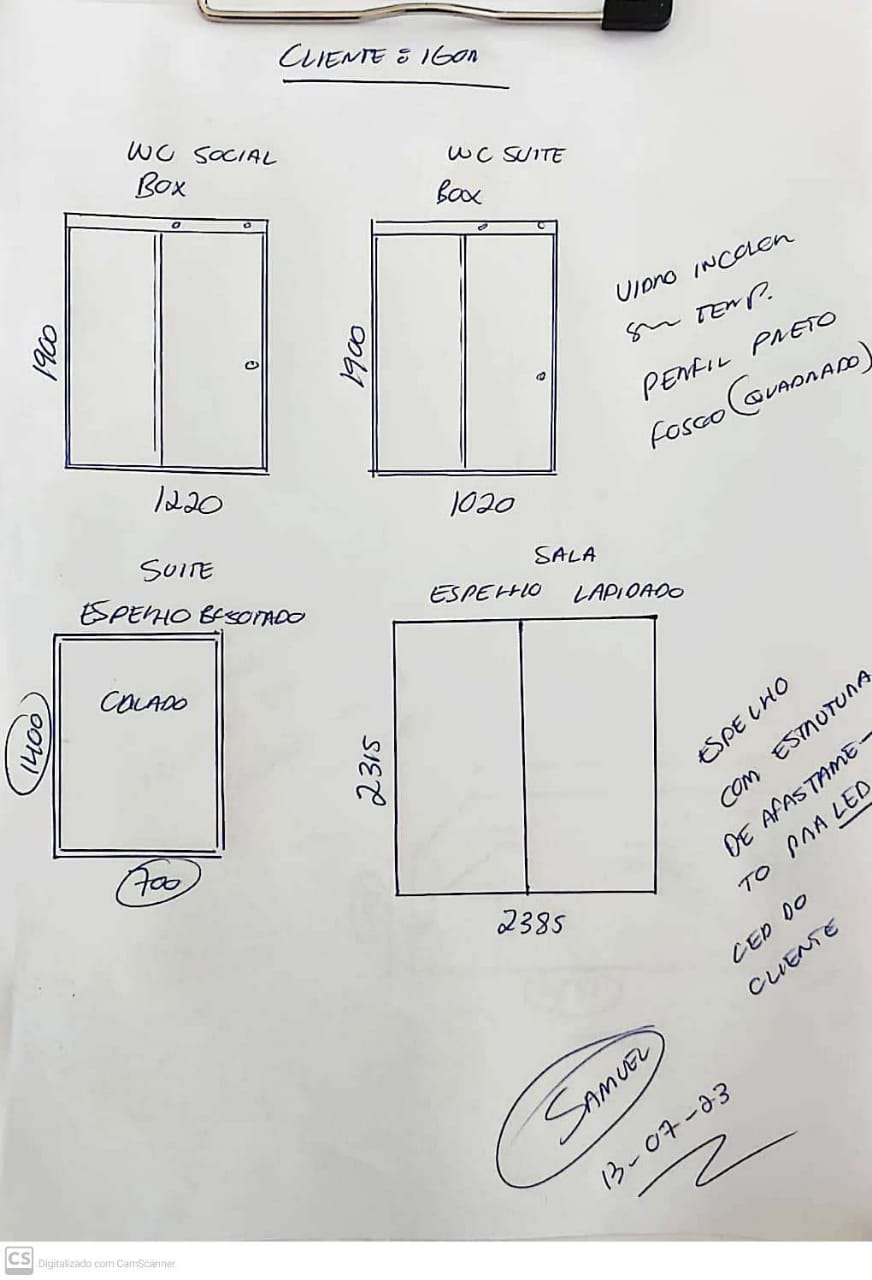 CLIENTE : IGOR
WC SOCIAL
BOX
1900
1220
WC SUITE
BOX
1900
1020
VIDRO INCOLOR
8mm TEMP.
PERFIL PRETO
FOSCO (QUADRADO)
SUITE
ESPELHO BISOTADO
COLADO
1400
700
SALA
ESPELHO LAPIDADO
2315
2385
ESPELHO
COM ESTRUTURA
DE AFASTAME-
TO PRA LED
LED DO
CLIENTE
SAMUEL
13-07-23
CS Digitalizado com CamScanner